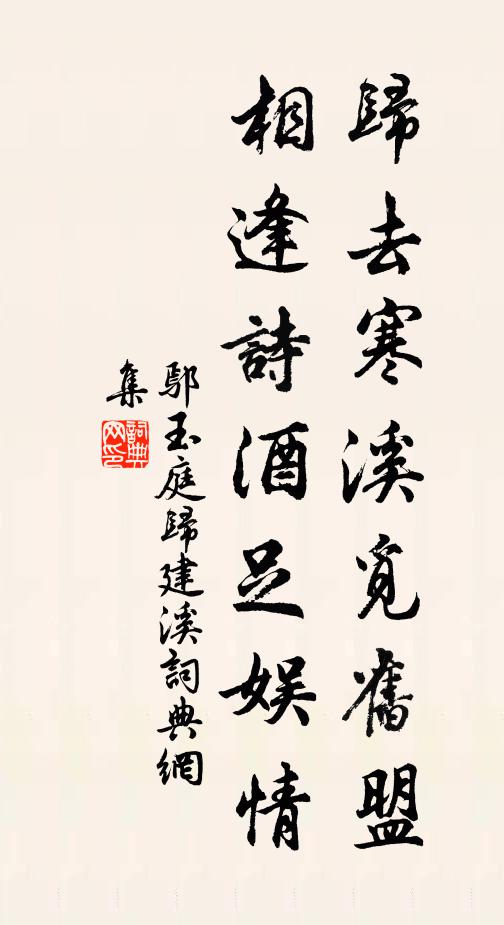 歸去寒溪覓舊盟
相逢詩酒足娛情
鄔玉庭歸建溪詞典網
集
詞典网印